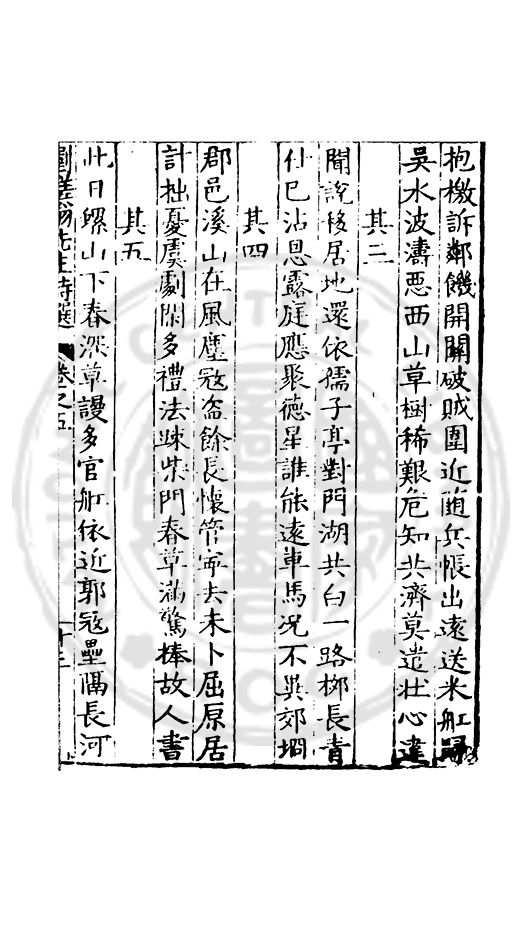 抱檄訴鄰饑開關破賊圍近隨兵帳出遠送米舡歸
吳水波濤惡西山草樹稀艱危知共濟莫遣壯心違
其三
聞說移居地還依孺子亭對門湖共白一路柳長青
仕已沾恩露庭應聚德星誰能遠車馬况不異郊坰
其四
郡邑溪山在風塵冦盗餘長懷管寧去未卜屈原居
計拙憂虞劇閑多禮法疎柴門春草滿驚捧故人書
其五
此日螺山下春深草謾多官舡依近郭冦壘隔長河
先生詩選 卷之五 十三